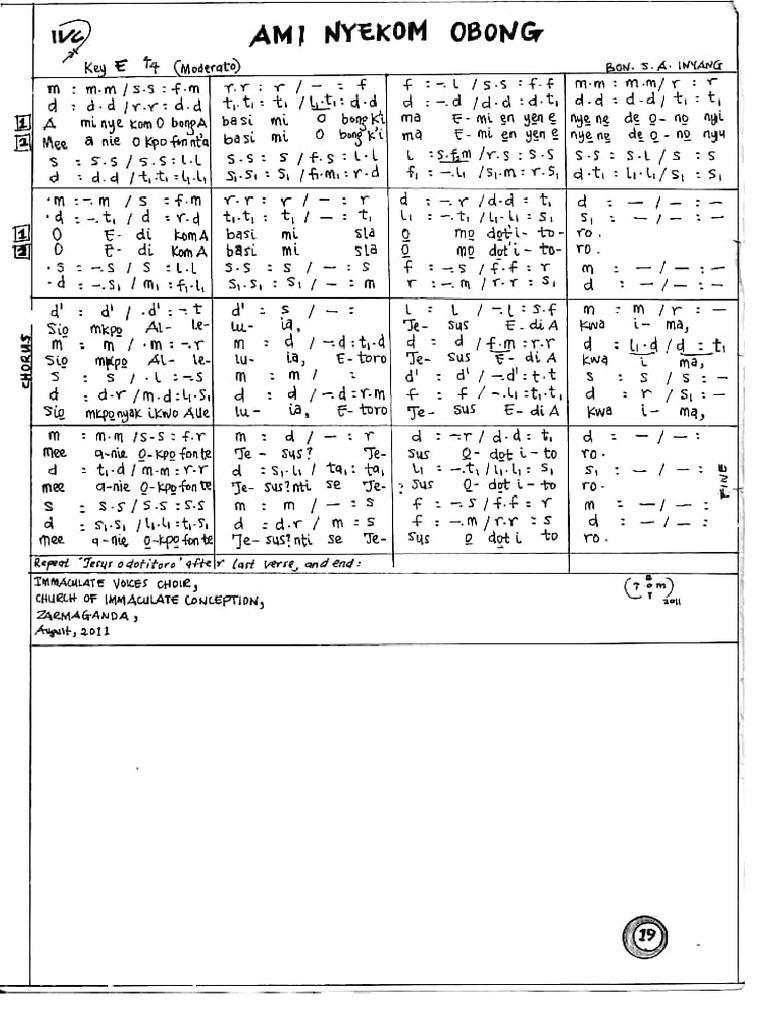 IVC
AMI NYEKOM OBONG
Key E 4/4 (Moderato)
BON. S. A. INYANG
m : m.m / s.s : f.m | r.r : r / — : f | f : -.l / s.s : f.f | m.m : m.m / r : r
d : d.d / r.r : d.d | t₁.t₁ : t₁ / l₁.t₁ : d.d | f : -.d / d.d : d.t₁ | d.d : d.d / t₁ : t₁
1 A mi nye kom O bong A | basi mi O bong Ki | ma E- mi en yen e | nye ne de O - no nyi
2 Mee a nie O kpo fon nt'a | basi mi O bong k'i | ma E- mi en yen e | nye ne de O - no nyu
s : s.s / s.s : l.l | s.s : s / f.s : l.l | l : s.f.m / r.s : s.s | s.s : s.l / s : s
d : d.d / t₁.t₁ : l₁.l₁ | s₁.s₁ : s₁ / f₁.m₁ : r.d | f₁ : -.l₁ / s₁.m : r.s₁ | d.t₁ : l₁.l₁ / s₁ : s₁
.m : -.m / s : f.m | r.r : r / — : r | d : -.r / d.d : t₁ | d : — / — : —
.d : -.t₁ / d : r.d | t₁.t₁ : t₁ / — : t₁ | l₁ : -.t₁ / l₁.l₁ : s₁ | s₁ : — / — : —
1 O E- di kom A | basi mi sla | O mo dot i - to- | ro.
2 O E- di kom A | basi mi sla | O mo dot' i - to- | ro.
.s : -.s / s : l.l | s.s : s / — : s | f : -.s / f.f : r | m : — / — : —
.d : -.s₁ / m₁ : f₁.l₁ | s₁.s₁ : s₁ / — : m | r : -.m / r.r : s₁ | d : — / — : —
CHORUS
d' : d' / .d' : -.t | d' : s / — : | l : l / -.l : s.f | m : m / r : —
Sio mkpo Al- le- | lu - ia, | Je- sus E- di A | Kwa i - ma,
m : m / .m : -.r | m : d / -.d : t₁.d | d : d / f.m : r.r | d : l₁.d / d : t₁
Sio mkpo Al - le- | lu- ia, E- toro | Je- sus E- di A | kwa i ma,
s : s / .l : -.s | m : m / : | d' : d' / -.d' : t.t | s : s / s : —
d : d.r / m.d : l₁.s₁ | d : d / -.d : r.m | f : f / -.l₁ : t₁.t₁ | d : r / s₁ : —
Sio mkponyak ikwo Alle | lu - ia, E- toro | Je- sus E- di A | kwa i - ma,
m : m.m / s.s : f.r | m : d / — : r | d : -.r / d.d : t₁ | d : — / — :
mee a-nie O-kpo fon te | Je - sus? Je- | sus O- dot i - to | ro.
d : t₁.d / m.m : r.r | d : s₁.l₁ / ta₁ : ta₁ | l₁ : -.t₁ / l₁.l₁ : s₁ | s₁ : — / — :
mee a-nie O-kpo fon te | Je- sus? nti se Je- | sus O- dot i - to | ro.
s : s.s / s.s : s.s | m : m / — : s | f : -.s / f.f : r | m : — / — :
d : s₁.s₁ / l₁.l₁ : t₁.s₁ | d : d.r / m : s | f : -.m / r.r : s | d : — / — :
mee a-nie O-kpo fon te | Je- sus? nti se Je- | sus O dot i to | ro.
FINE
Repeat 'Jesus odotitoro' after last verse, and end:
IMMACULATE VOICES CHOIR,
CHURCH OF IMMACULATE CONCEPTION,
ZARMAGANDA,
August, 2011
2011
19